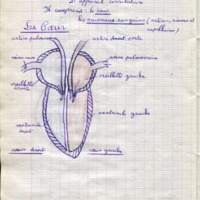 L'appareil circulatoire
Il comprend : le cœur
les vaisseaux sanguins (artères, veines et
capillaires)
Le Cœur
artère pulmonaire
artère aorte
veine cave
veine pulmonaire
oreillette
droite
oreillette gauche
ventricule gauche
ventricule
droit
cœur droit
cœur gauche